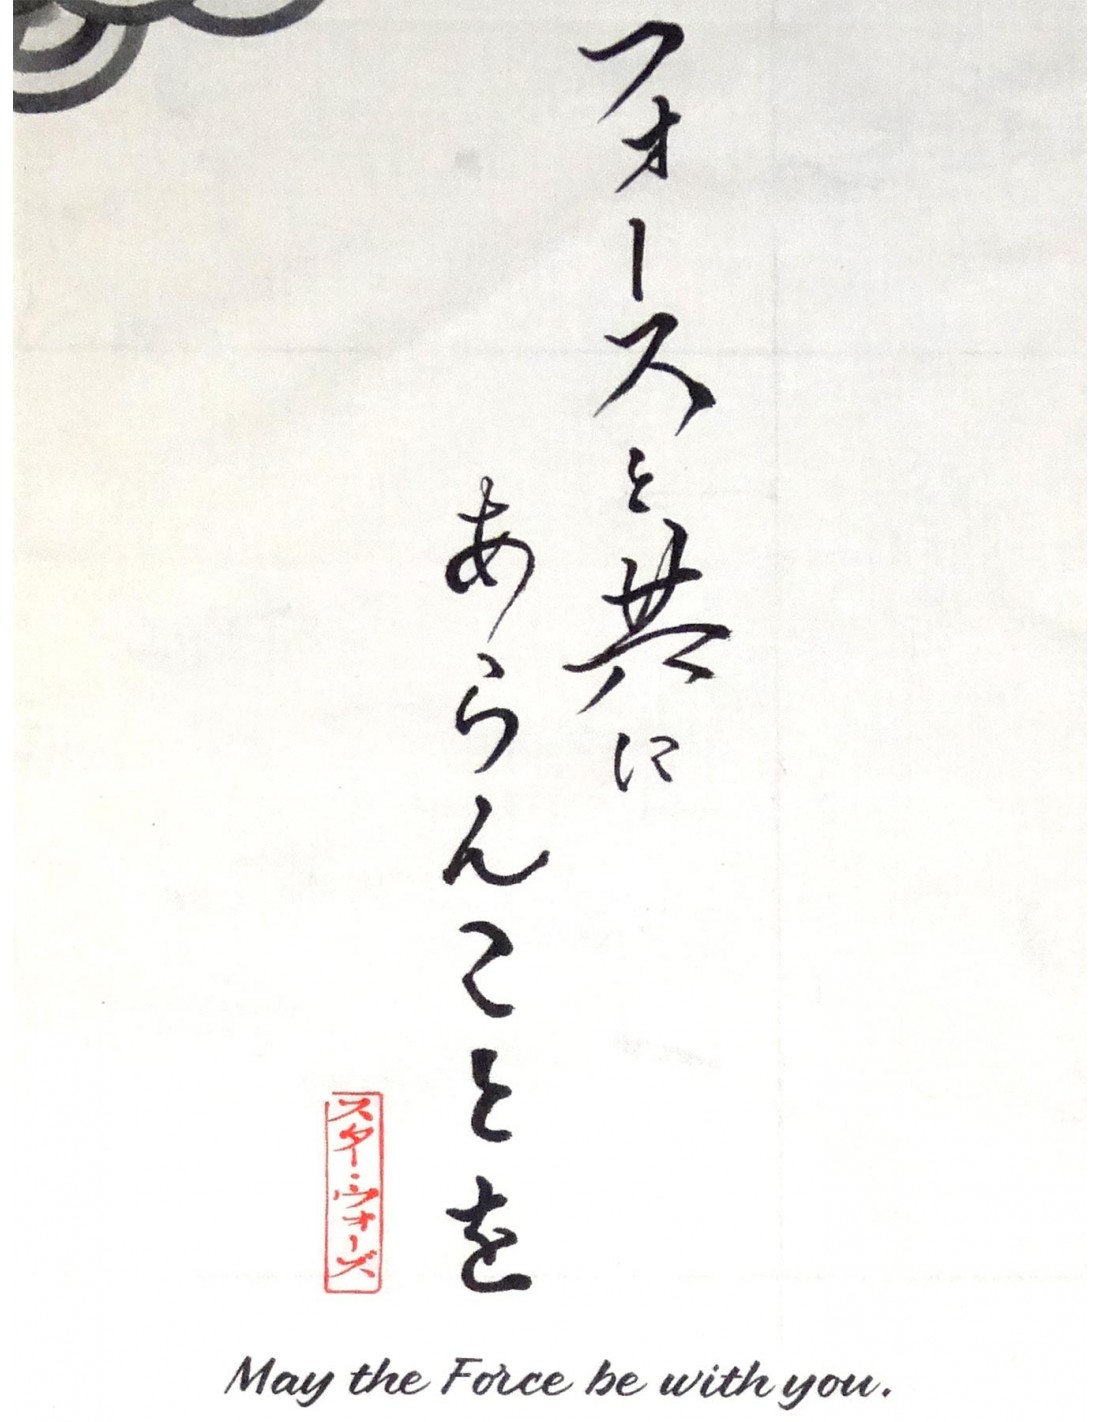 フォースと共に
あらんことを
スター・ウォーズ
May the Force be with you.